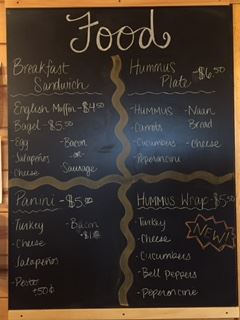 Food
Breakfast
Sandwich
English Muffin - $4.50
Bagel - $5.50
-Egg
Jalapeños
Cheese
-Bacon
-or-
Sausage
Hummus
Plate - $6.50
-Hummus
-Carrots
-Cucumbers
-Peperoncini
-Naan
Bread
-Cheese
Panini - $5.00
Turkey
-Cheese
Jalapeños
-Pesto
+50¢
-Bacon
+$1.00
Hummus Wrap - $5.50
-Turkey
-Cheese
-Cucumbers
-Bell Peppers
-Peperoncine
NEW!!